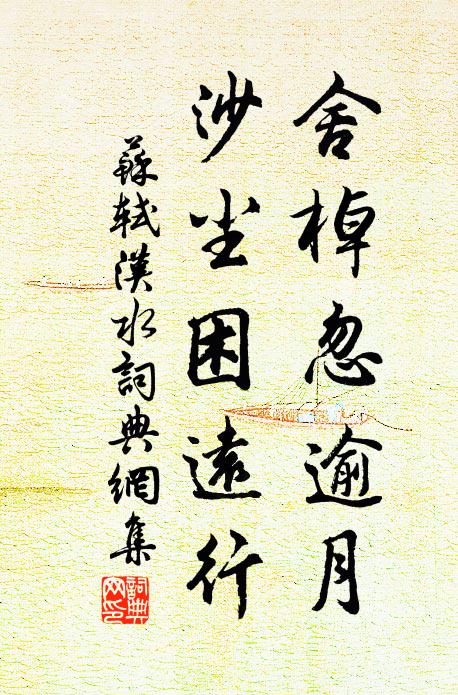 舍棹忽逾月
沙尘困遠行
蘇軾漢水詞典網集
詞典
网印